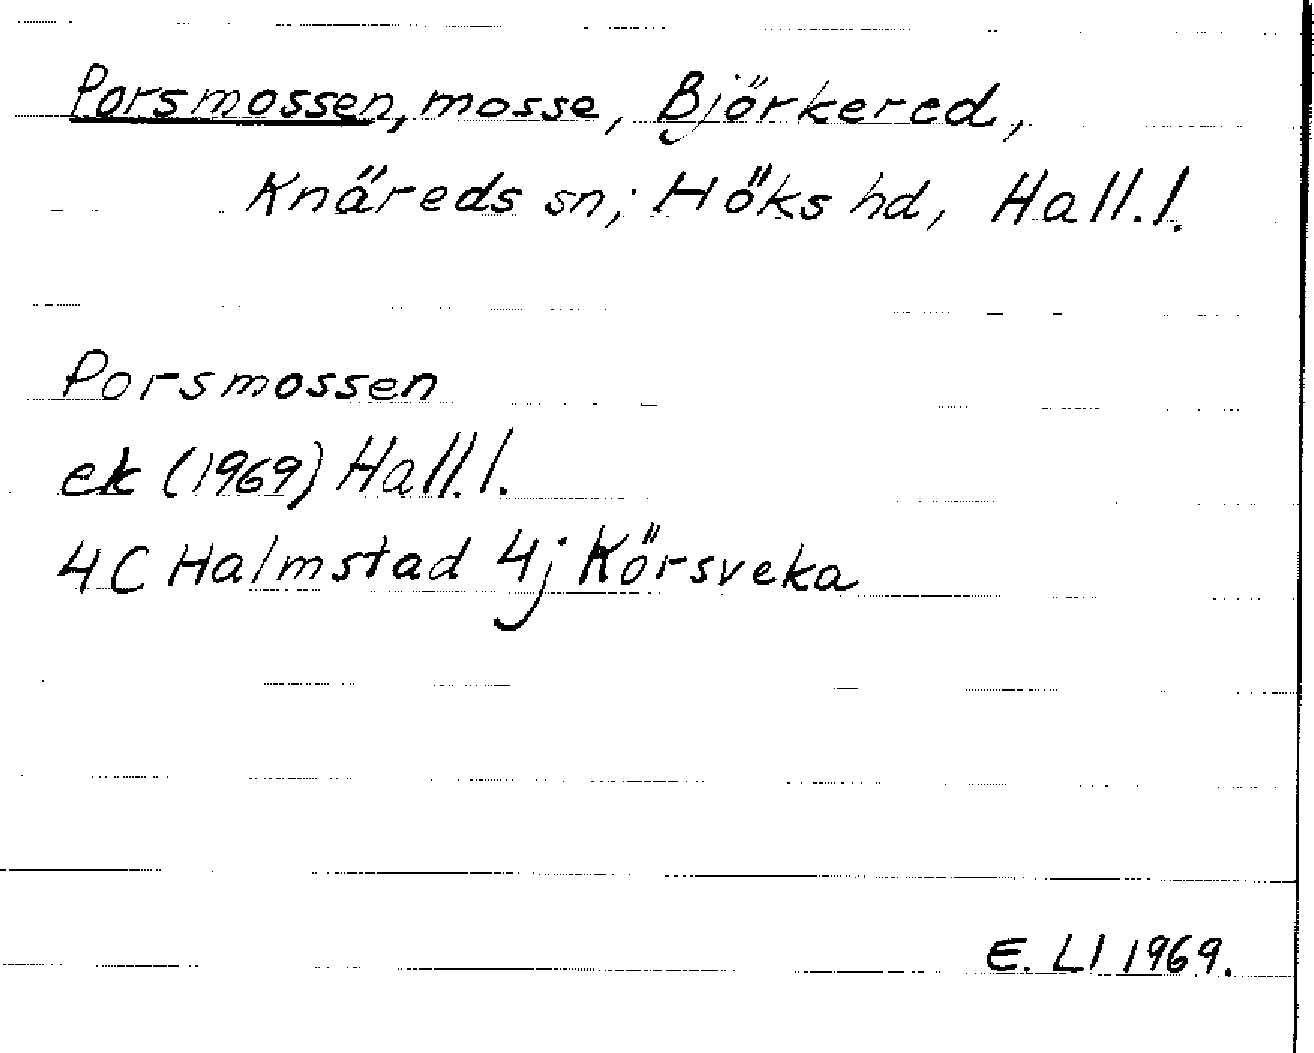 Porsmossen, mosse, Björkered,
Knäreds sn; Höks hd, Hall.l.
Porsmossen
ek (1969) Hall.l.
4C Halmstad 4j Körsveka
E. Ll 1969.